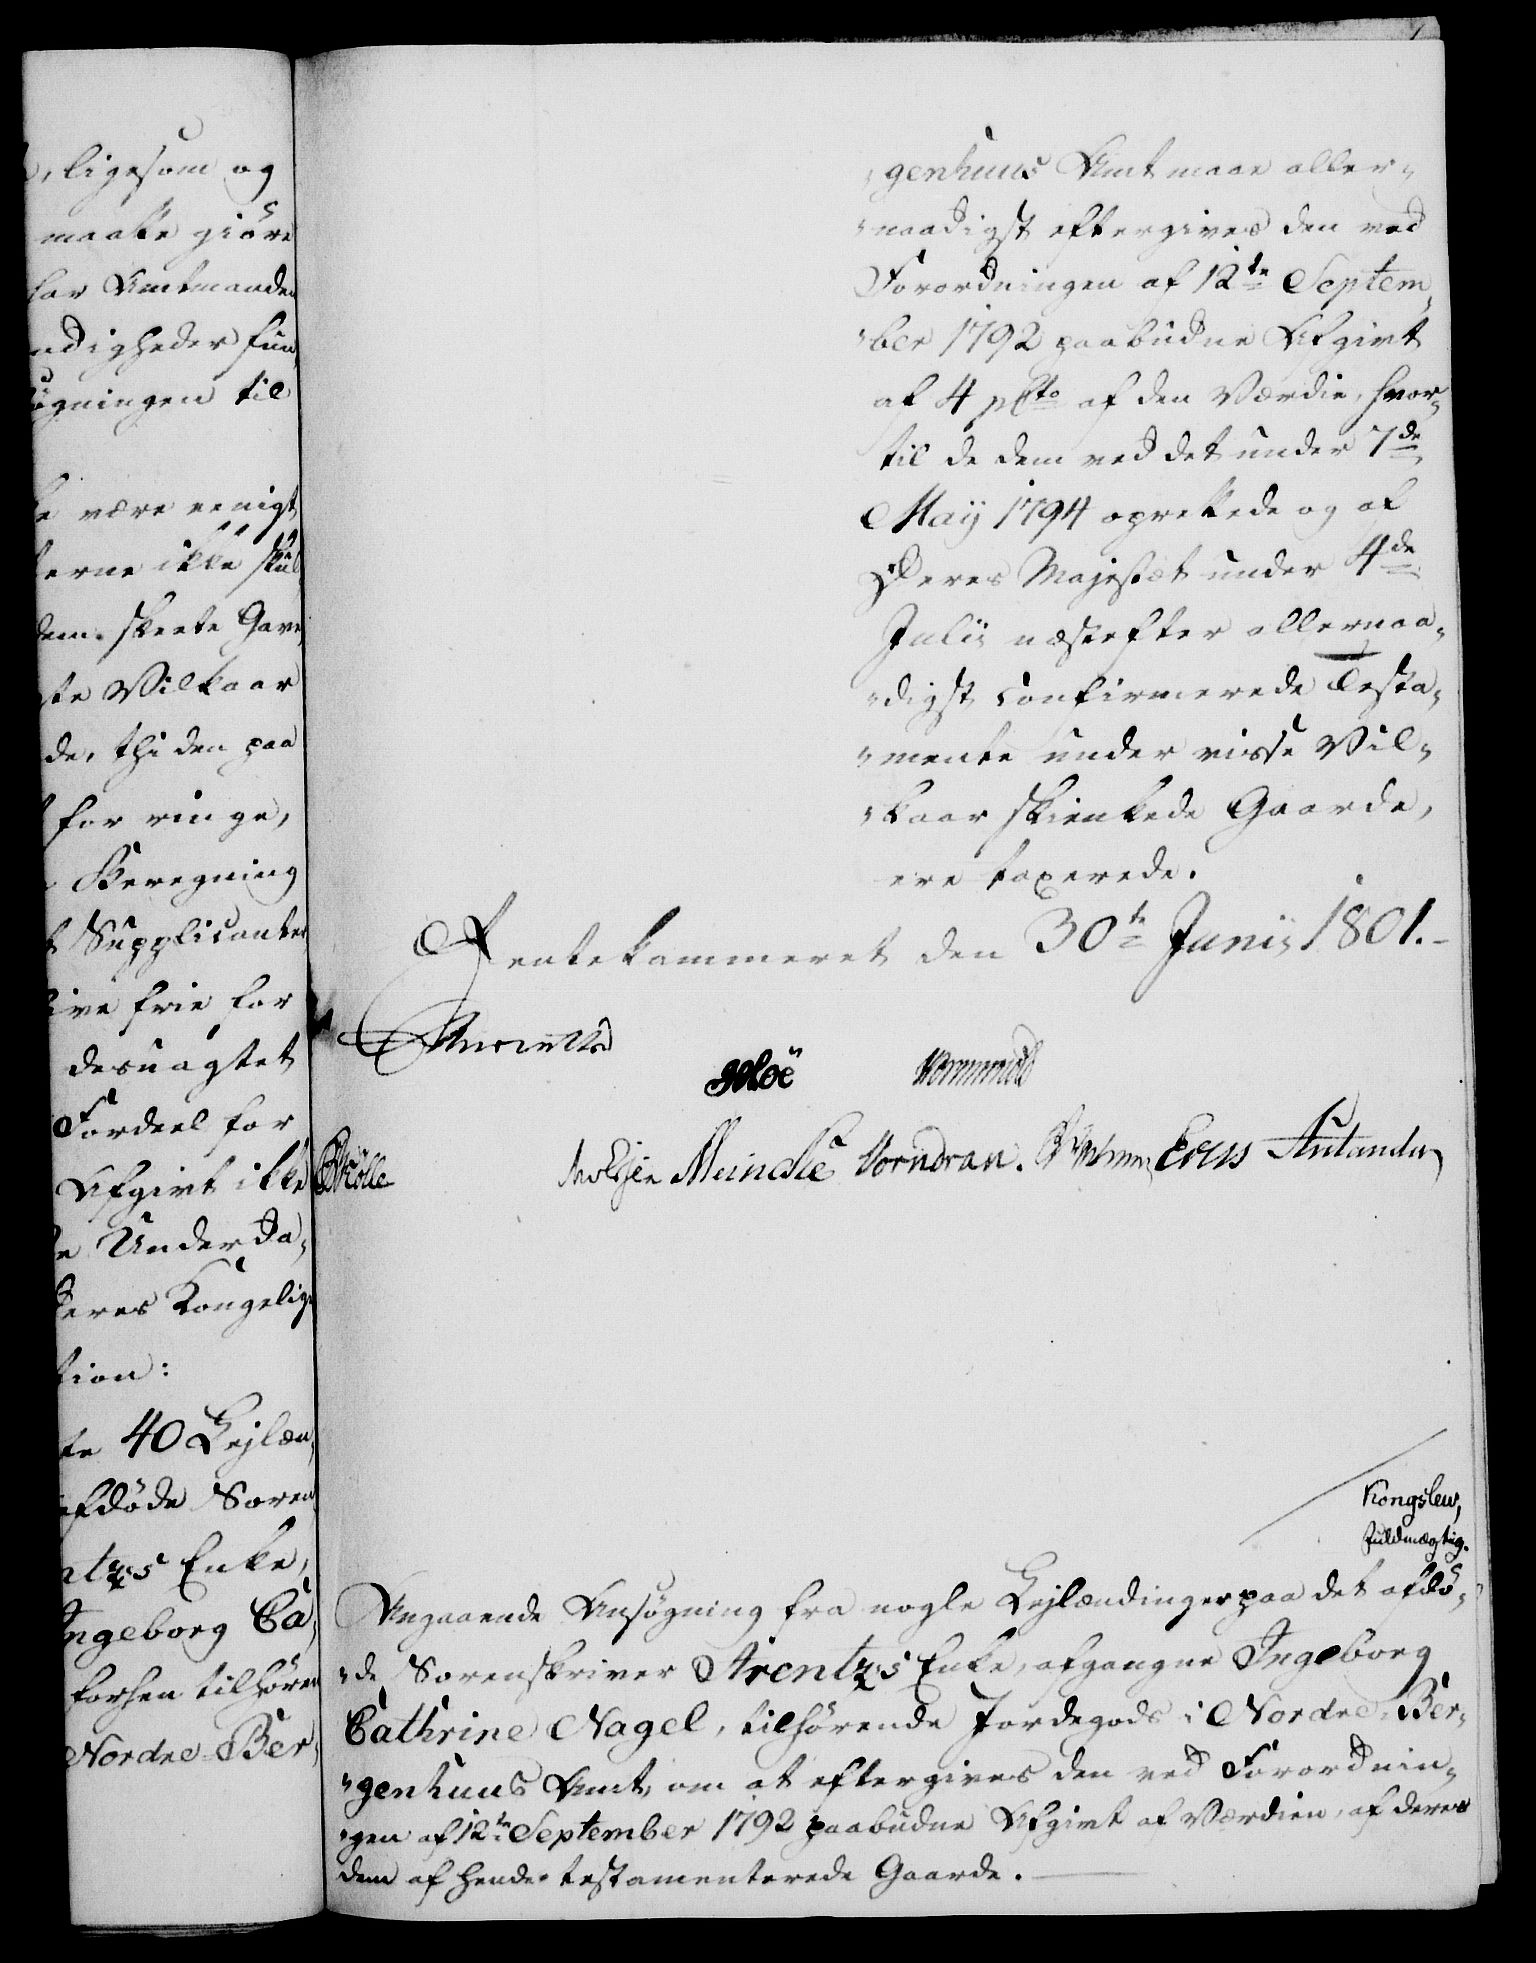 , ligesom og
maatte giöre
har Amtmanden
ndigheder fun,
øgningen til
være eenigt
terne ikke skul
dem skeete Gave
ste Vilkaar
de, thi den paa
for ringe,
Beregning
Supplicanter
live frie for
desuagtet
Fordeel for
Afgivt ikke
Underda,
Deres Kongelig
tion:
te 40 Lejlæn,
afdöde Soren
ntzes Enke,
Ingeborg Ca,
forhen tilhören
Nordre Ber,
"genhuus Amt maae aller,
"naadigst eftergives den ved
Forordningen af 12te Septem,
"ber 1792 paabudne Afgivt
af 4 pCto af den Værdie, hvor,
til de dem ved det under 7de
May 1794 oprettede og af
Deres Majestæt under 4de
Julii næstefter allernaa,
"digst confirmerede Testa,
"mente under visse Vil,
"kaar skienkede Gaarde,
ere taxerede.
Rentekammeret den 30te Junii 1801.-
Moë
Mölle
Meincke Vorndran.
Kongslew,
Fuldmægtig.
Angaaende Ansøgning fra nogle Lejlændinger paa det afdö,
"de Sorenskriver Arentzes Enke, afgangne Ingeborg
Cathrine Nagel, tilhörende Jordegods i Nordre Ber,
"genhuus Amt, om at eftergives den ved Forordnin,
"gen af 12te September 1792 paabudne Afgivt af Værdien af deres
dem af hende testamenterede Gaarde.